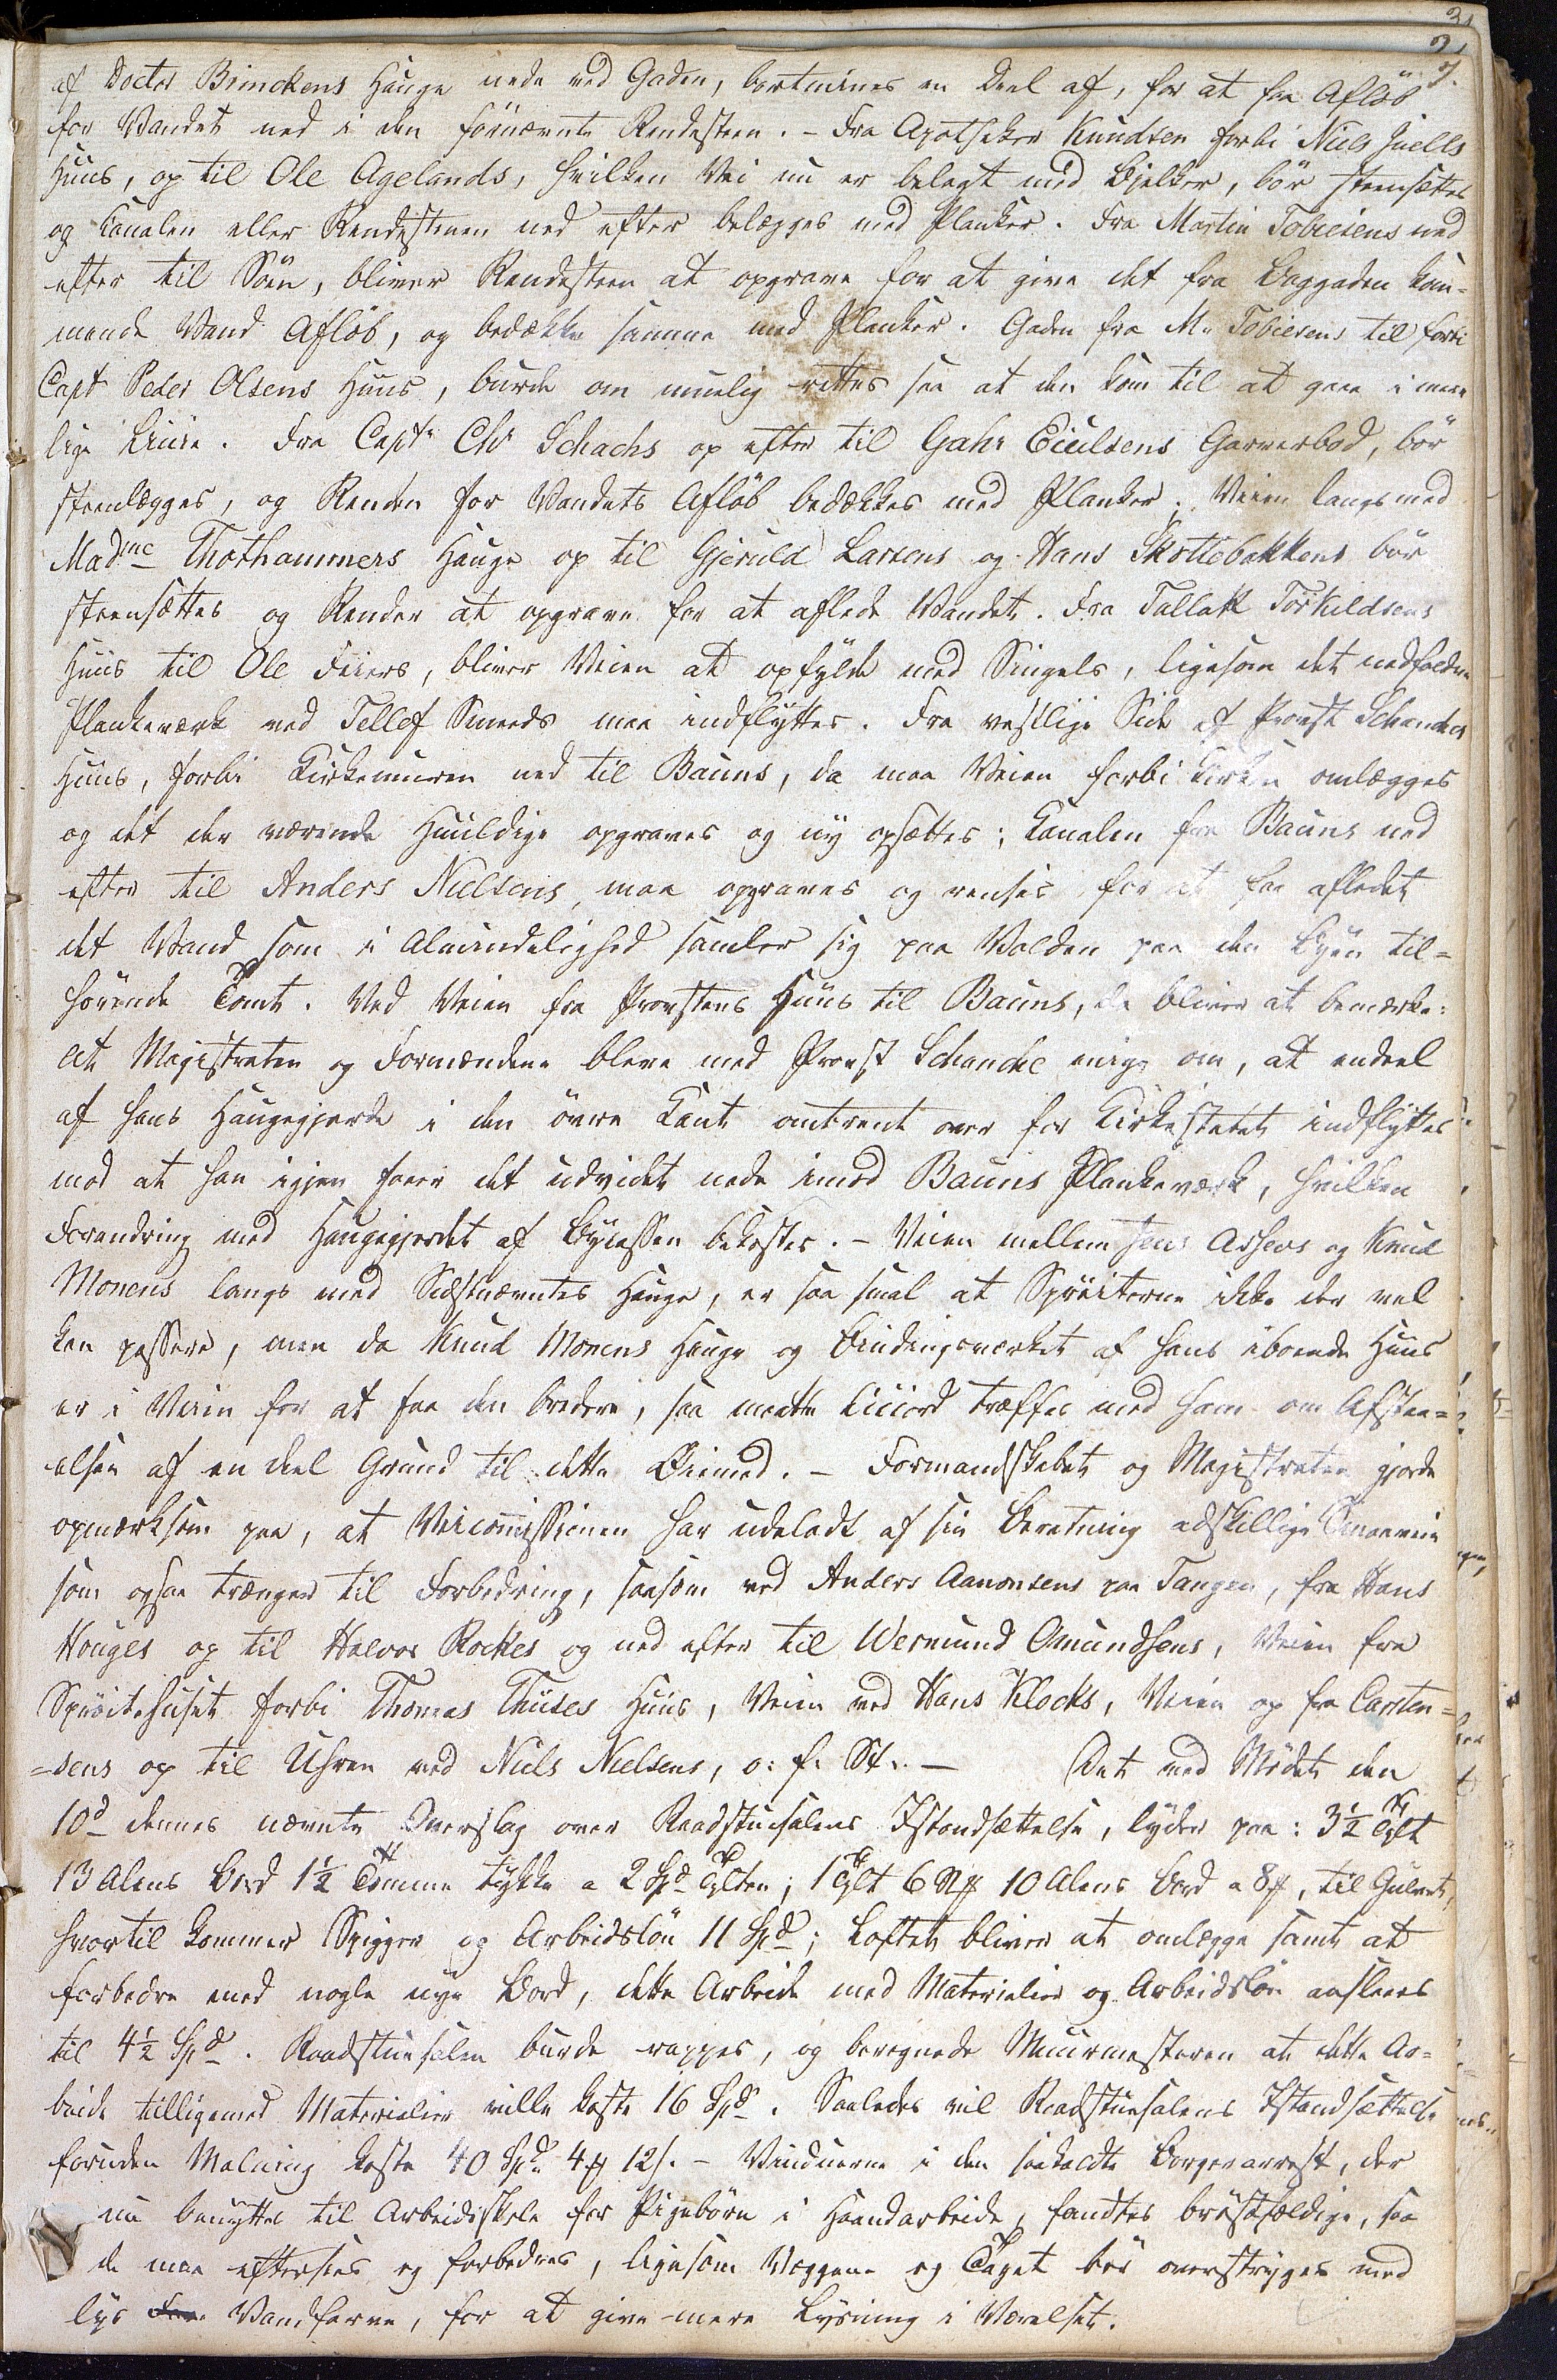 3,
2,
7.
af Doctor Brinckens Hauge nede ved Gaden, bortmines en Deel af, for at faa Afløb
for Vandet ned i den førnævnte Rendesteen. - Fra Apotheker Knudsen forbi Niels Juells
Huus, op til Ole Agelands, hvilken Vei nu er belagt med Bjelker, bør steensættes
og Canalen eller Rendestenen ned efter belægges med Planker. Fra Martin Tobiesens ned
efter til Søen, bliver Rendesteen at opgrave for at give det fra Baggaden kom-
mende Vand Afløb, og bedække samme med Planker. Gaden fra M. Tobiesens til forbi
Capt Peder Olsens Huus, burde om muelig rettes saa at den kom til at gaae i mere
lige Linie. Fra Captn Chr Schachs op efter til Gahr Eiulsens Garverbod, bør
steenlægges, og Renden for Vandets Afløb bedækkes med Planker; Veien langs med
Madme Thothammers Hauge op til Gjeruld Larsens og Hans Skottebakkens bør
steensættes og Render at opgrave for at aflede Vandet. Fra Tallak Torkildsens
Huus til Ole Fiiers, bliver Veien at opfylde med Singels, ligesom det nedfaldne
Plankeværk ved Tellef Smeds maa indflyttes. Fra vestlige Side af Provst Schanches
Huus, forbi Kirkemuren ned til Bauns, da maa Veien forbi Kirken omlægges
og det der værende Huuldige opgraves og ny opsættes; Canalen fra Bauns ned
efter til Anders Nielsens, maa opgraves og renses for at faa afledet
det Vand som i Almindelighed samler sig paa Volden paa den Byen til-
hørende Tomt. Ved Veien fra Provstens Huus til Bauns, da bliver at bemærke:
at Magistraten og Formændene bleve med Provst Schanche enige om, at endeel
af hans Haugegjerde i den øvre Kant omtrent over for Kirkestetet indflyttes
mod at han igjen faaer det udvidet nede imod Bauns Plankeværk, hvilken
Forandring med Haugegjerdet af Bycassen bekostes. - Veien mellem Jens Assevs og Knud
Monens langs med Sidstnævntes Hauge, er saa smal at Sprøiterne ikke der vel
kan passere, men da Knud Monens Hauge og Bindingsværket af hans iboende Huus
er i Veien for at faa den bredere, saa maatte Accord træffes med ham om Afstaa-
elsen af en deel Grund til dette Øiemed. - Formandskabet og Magistraten gjorde
opmærksom paa, at Veicommissionen har udeladt af sin Beretning adskillige Smaaveie
som ogsaa trænger til Forbedring, saasom ved Anders Aanonsens paa Tangen, fra Hans
Houges op til Halvor Rockes og ned efter til Wermund Omundsens, Veien fra
Sprøitehuset forbi Thomas Thiises Huus, Veien ved Hans Klocks, Veien op fra Carsten-
=sens op til Uhren ved Niels Nielsens, o: fl. St. - Det ved Mødet den
10d dennes nævnte Overslag over Raadstuesalens Istandsættelse, lyder paa: 3½ Tylt
13 Alens Bord 1½ Tomme tykke a 2 Spd Tylten; 1 Tylt 6 Stk 10 Alens Bord a 8 s, til Gulvet,
hvortil kommer Spigger og Arbeidsløn 11 Spd; Loftet bliver at omlægge samt at
forbedre med nogle nye Bord, dette Arbeide med Materialier og Arbeidsløn anslaaes
til 4½ Spd. Raadstuesalen burde rappes, og beregnede Muurmesteren at dette Ar-
beide tilligemed Materialier ville koste 16 Spd. Saaledes vil Raadstuesalens Istandsættelse
foruden Malning koste 40 Spd. 4 12s. - Vinduerne i den saakaldte Borgerarrest, der
nu benyttes til Arbeidsskole for Pigebørn i Haandarbeide, fandtes brøstfældige, saa
de maa eftersees og forbedres, ligesom Væggene og Taget bør overstryges med
lys Vandfarve, for at give mere Lysning i Værelset.